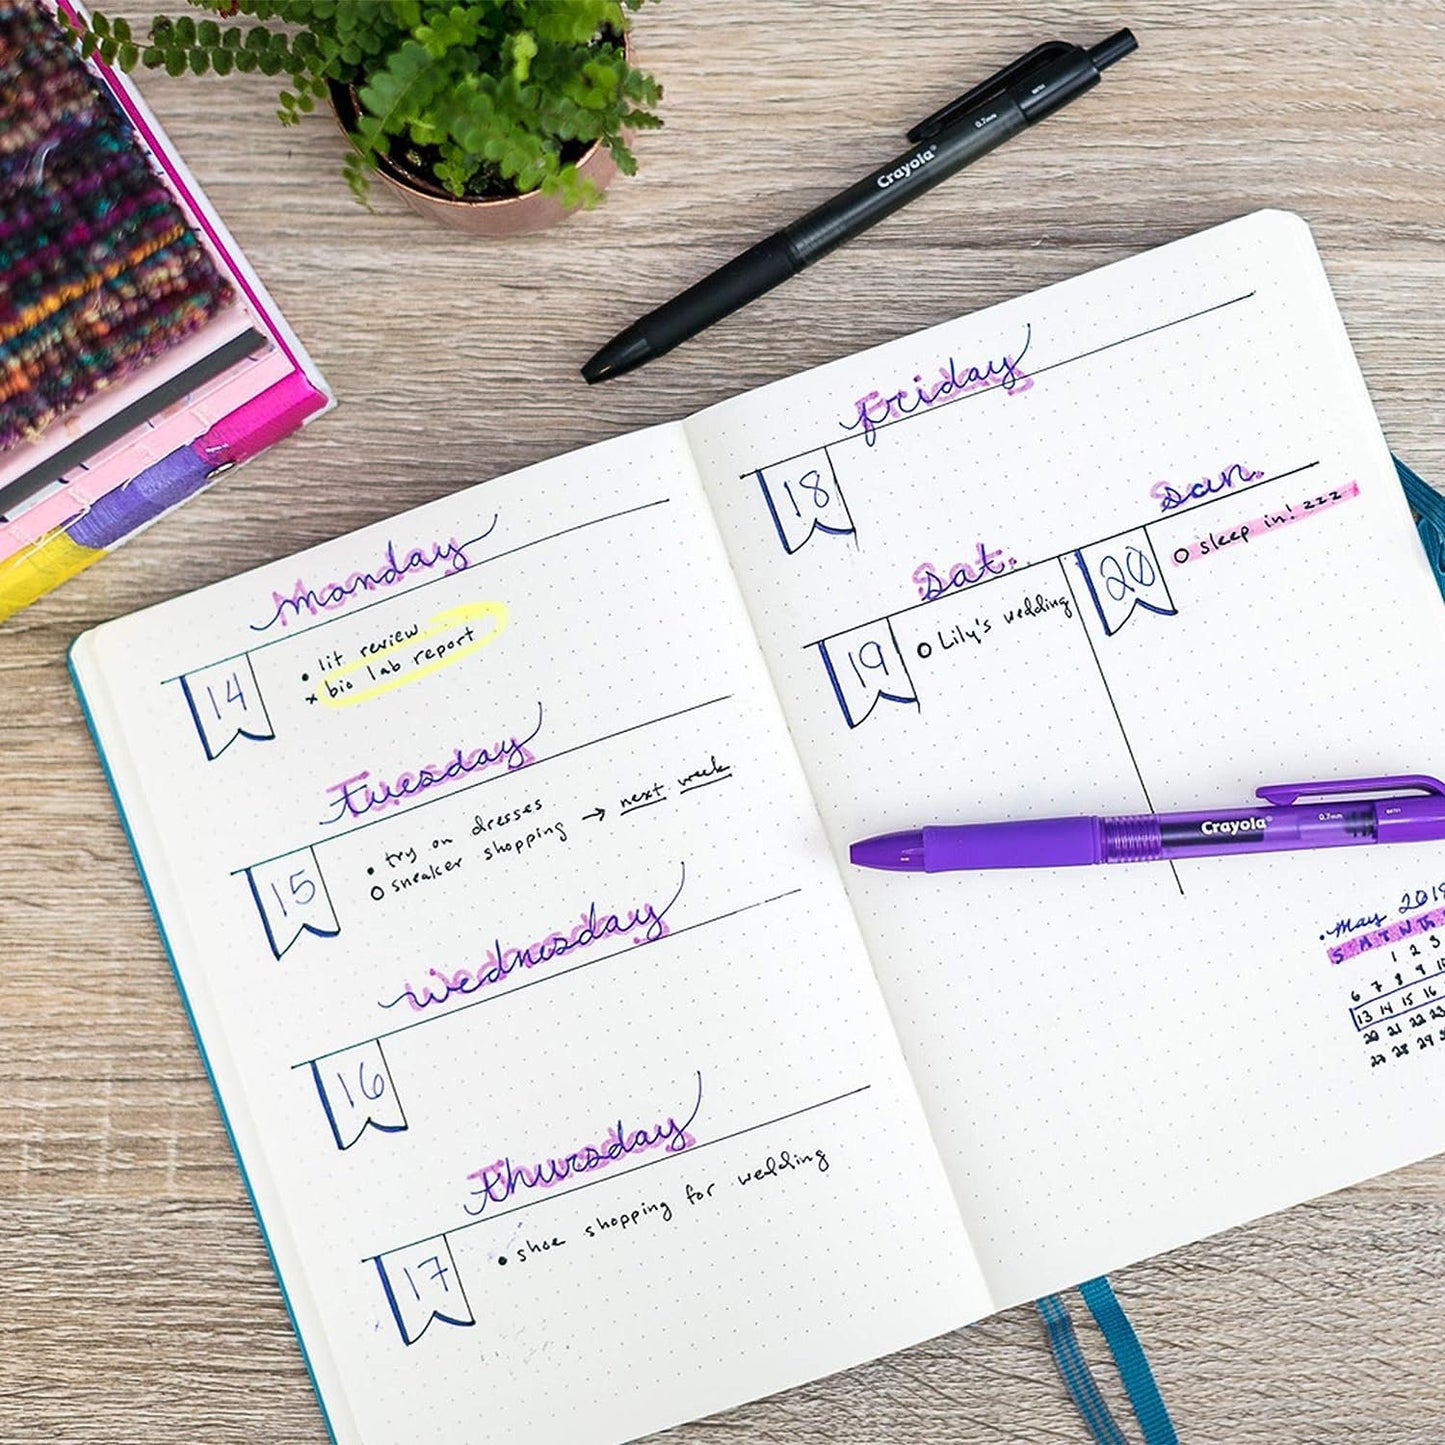 Monday
14
• lit review
x bio lab report
Tuesday
15
• try on dresses
O sneaker shopping → next week
Wednesday
16
Thursday
17
• shoe shopping for wedding
Friday
18
Sat.
19
O Lily's wedding
Sun.
20
O sleep in! zzz
• May 2018
S M T W Th
1 2 3
6 7 8 9 10
13 14 15 16
20 21 22 23
27 28 29
Crayola® 0.7mm
Crayola® 0.7mm